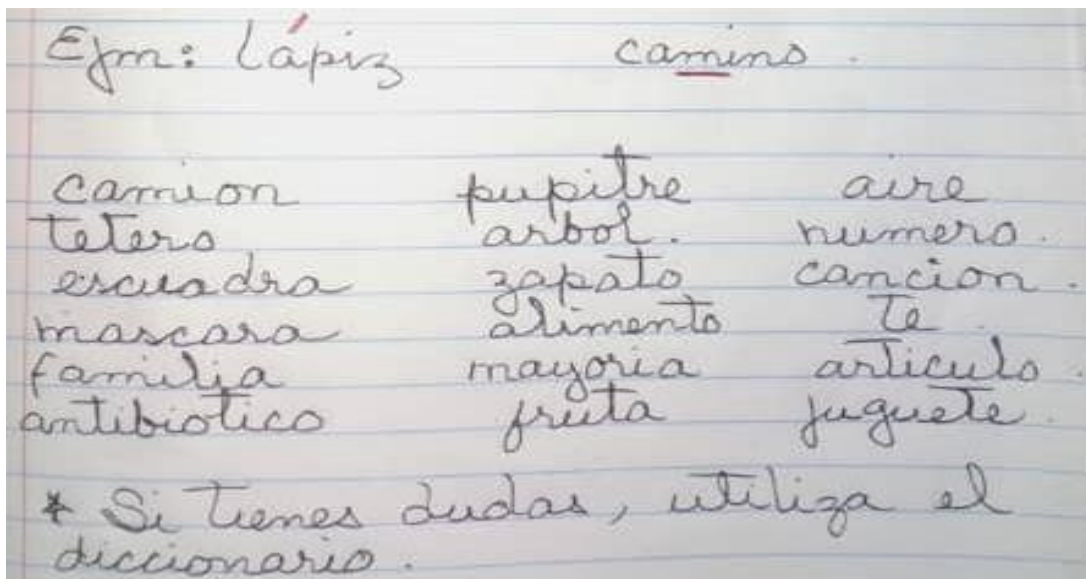 Ejm: Lápiz camino.
camion pupitre aire
tetero arbol. numero.
escuadra zapato cancion.
mascara alimento te.
familia mayoria articulo.
antibiotico fruta juguete.
* Si tienes dudas, utiliza el
diccionario.